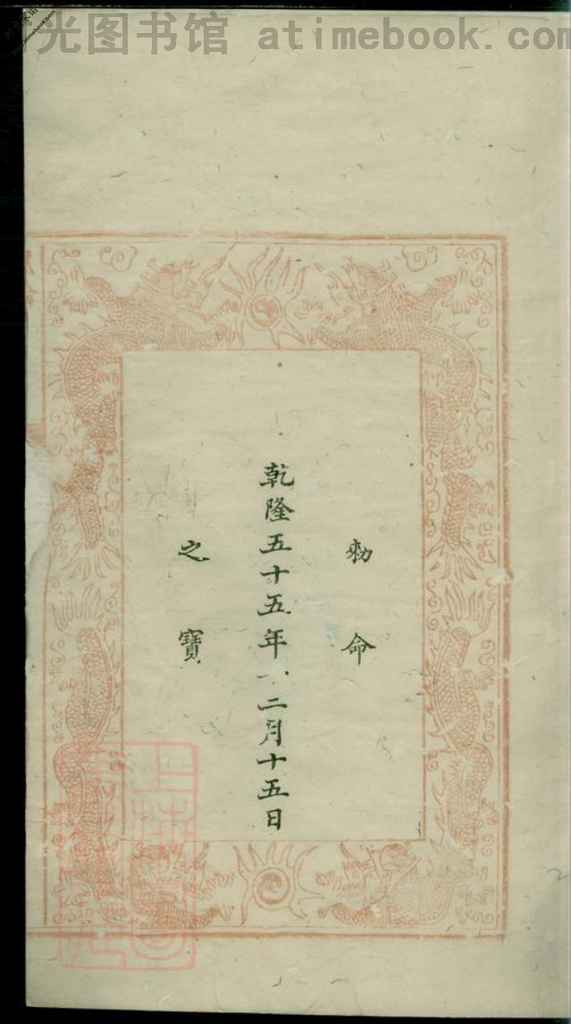 光图书馆 atimebook.com
勅命
乾隆五十五年 二月十五日
之寶